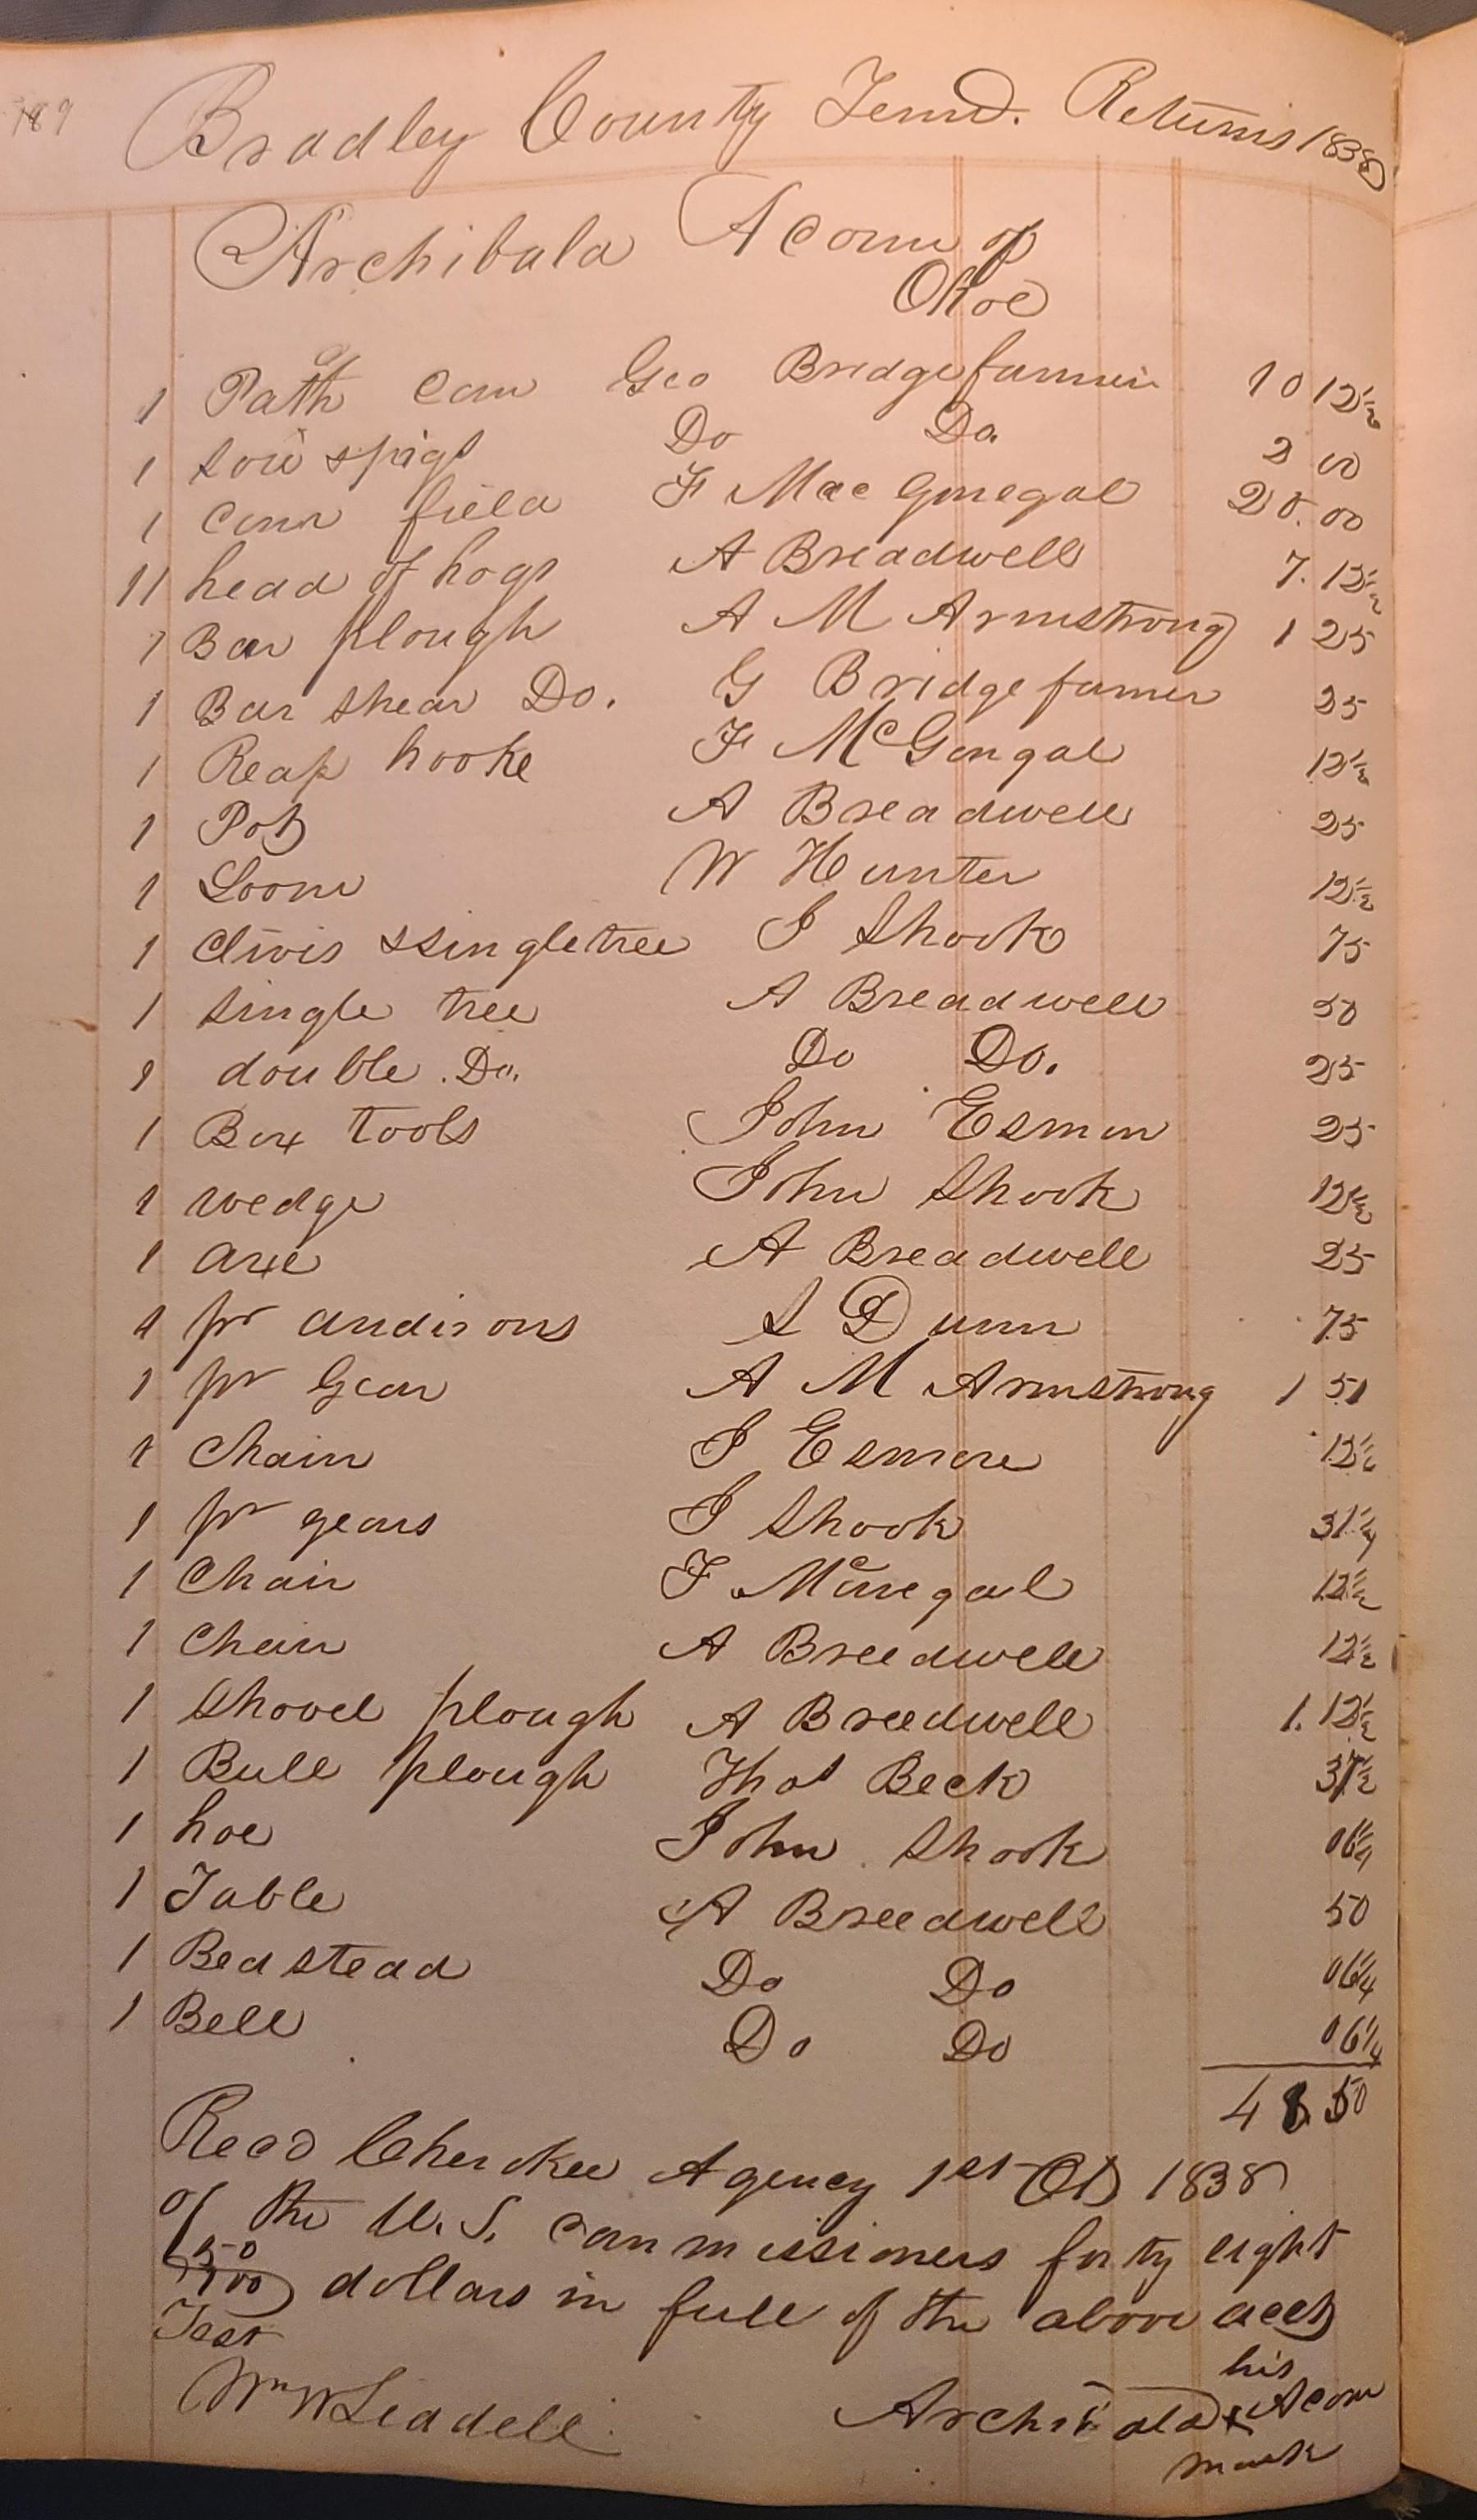 189
Bradley County Tenn. Returns 1838
Archibald Acorn of
Okoe
1 Path of Corn Geo Bridgefarmer 10 12½
1 sow & pigs Do Do. 2 00
1 Corn field F MacGonegal 20.00
11 head of hogs A Breadwell 7.12½
1 Bar plough A M Armstrong 1 25
1 Bar Shear Do. G Bridgefarmer 25
1 Reap hooke F McGongal 12½
1 Pot A Breadwell 25
1 Loom W Hunter 12½
1 Clivis & Singletree J Shook 75
1 Single tree A Breadwell 50
1 double Do. Do Do. 25
1 Box tools John Esmon 25
1 wedge John Shook 12½
1 axe A Breadwell 25
1 pr andirons S Dunn 75
1 pr Gear A M Armstrong 1 51
1 Chain J Esmore 12½
1 pr gears J Shook 31¼
1 Chair F 12½
1 Chair A Breedwell 12½
1 Shovel plough A Breedwell 1.12½
1 Bull plough Thos Beck 37½
1 hoe John Shook 06¼
1 Table A Breedwell 50
1 Bedstead Do Do 06¼
1 Bell Do Do 06¼
48.50
Recd Cherokee Agency 1st Oct 1838
of the U.S. Commissioners forty eight
50/100 dollars in full of the above acct
Test
his
Wm W Liddell Archibald x Acorn
mark